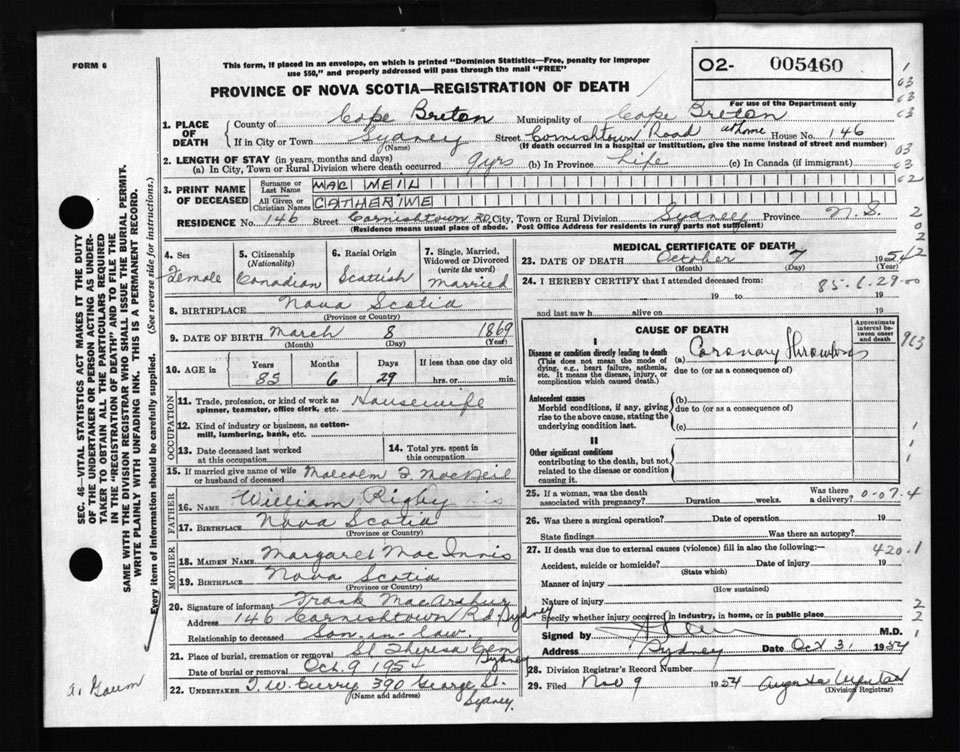 FORM 6
This form, if placed in an envelope, on which is printed "Dominion Statistics—Free, penalty for improper
use $50," and properly addressed will pass through the mail "FREE"
PROVINCE OF NOVA SCOTIA—REGISTRATION OF DEATH
O2- 005460
For use of the Department only
1. PLACE OF DEATH
County of Cape Breton Municipality of Cape Breton
If in City or Town Sydney Street Cornishtown Road at home House No. 146
(Name) (If death occurred in a hospital or institution, give the name instead of street and number)
2. LENGTH OF STAY (in years, months and days)
(a) In City, Town or Rural Division where death occurred 9 yrs (b) In Province Life (c) In Canada (if immigrant)
3. PRINT NAME OF DECEASED
Surname or Last Name MAC NEIL
All Given or Christian Names CATHERINE
RESIDENCE No. 146 Street Cornishtown RD, City, Town or Rural Division Sydney Province N.S.
(Residence means usual place of abode. Post Office Address for residents in rural parts not sufficient)
4. Sex Female
5. Citizenship (Nationality) Canadian
6. Racial Origin Scottish
7. Single, Married, Widowed or Divorced (write the word) Married
8. BIRTHPLACE Nova Scotia
(Province or Country)
9. DATE OF BIRTH March 8 1869
(Month) (Day) (Year)
10. AGE in Years 85 Months 6 Days 29 If less than one day old hrs. or min.
OCCUPATION
11. Trade, profession, or kind of work as spinner, teamster, office clerk, etc. Housewife
12. Kind of industry or business, as cotton-mill, lumbering, bank, etc.
13. Date deceased last worked at this occupation
14. Total yrs. spent in this occupation
15. If married give name of wife or husband of deceased Malcolm F MacNeil
FATHER
16. NAME William Rigby
17. BIRTHPLACE Nova Scotia
(Province or Country)
MOTHER
18. MAIDEN NAME Margaret MacInnis
19. BIRTHPLACE Nova Scotia
(Province or Country)
20. Signature of informant Frank MacArthur
Address 146 Cornishtown Rd Sydney
Relationship to deceased Son-in-law
21. Place of burial, cremation or removal St Theresa Cem Sydney
Date of burial or removal Oct. 9 1954
22. UNDERTAKER T. W. Curry 390 George St.
(Name and address) Sydney.
MEDICAL CERTIFICATE OF DEATH
23. DATE OF DEATH October 7 1954
(Month) (Day) (Year)
24. I HEREBY CERTIFY that I attended deceased from: 85-6-29-00
19 to 19
and last saw h alive on 19
CAUSE OF DEATH
Approximate interval between onset and death
I
Disease or condition directly leading to death
(This does not mean the mode of dying, e.g., heart failure, asthenia, etc. It means the disease, injury, or complication which caused death.)
(a) Coronary Thrombosis
due to (or as a consequence of)
Antecedent causes
Morbid conditions, if any, giving rise to the above cause, stating the underlying condition last.
(b)
due to (or as a consequence of)
(c)
II
Other significant conditions
contributing to the death, but not related to the disease or condition causing it.
25. If a woman, was the death associated with pregnancy? Duration weeks. Was there a delivery? 0-07-4
26. Was there a surgical operation? Date of operation 19
State findings Was there an autopsy?
27. If death was due to external causes (violence) fill in also the following:— 420.1
Accident, suicide or homicide? Date of injury 19
(State which)
Manner of injury
(How sustained)
Nature of injury
Specify whether injury occurred in industry, in home, or in public place
Signed by M.D.
Address Sydney Date Oct 31 1954
28. Division Registrar's Record Number
29. Filed Nov 9 1954
(Division Registrar)
SEC. 46—VITAL STATISTICS ACT MAKES IT THE DUTY
OF THE UNDERTAKER OR PERSON ACTING AS UNDER-
TAKER TO OBTAIN ALL THE PARTICULARS REQUIRED
IN THE "REGISTRATION OF DEATH" AND TO FILE THE
SAME WITH THE DIVISION REGISTRAR WHO SHALL ISSUE THE BURIAL PERMIT.
WRITE PLAINLY WITH UNFADING INK. THIS IS A PERMANENT RECORD.
Every item of information should be carefully supplied. (See reverse side for instructions.)